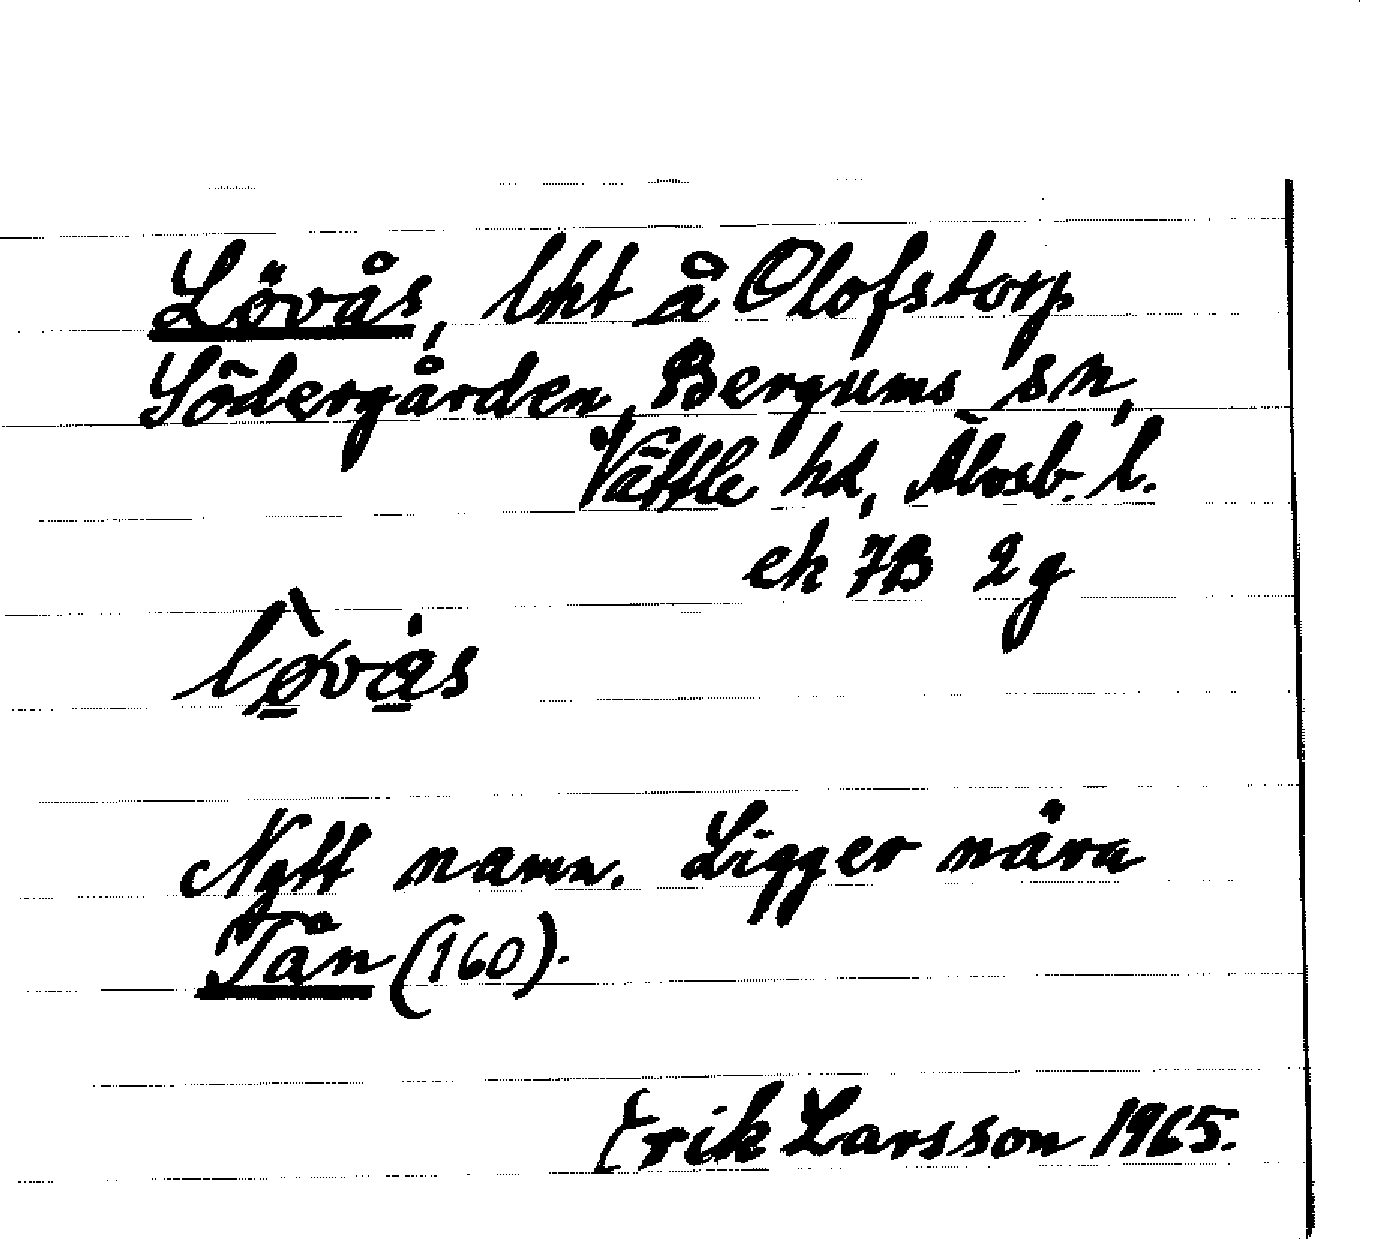 Lövås, lht å Olofstorp
Södergården, Bergums sn,
Vättle hd, Älvsb. l.
ek 7B 2g
lø̱̀vå̱s
Nytt namn. Ligger nära
Tån (160).
Erik Larsson 1965.